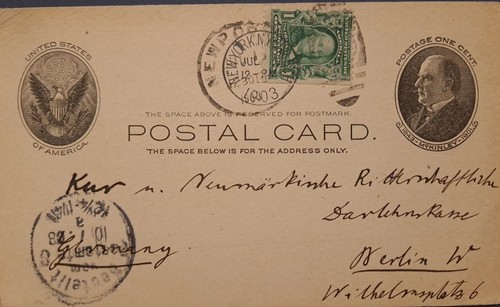 UNITED STATES
OF AMERICA.
NEW YORK, N.Y.
JUL
1903
POSTAGE ONE CENT.
1843 - McKINLEY - 1901
THE SPACE ABOVE IS RESERVED FOR POSTMARK.
POSTAL CARD.
THE SPACE BELOW IS FOR THE ADDRESS ONLY.
Kur u. Neumärkische Ritterschaftliche
Darlehnskasse
Germany.
Berlin W
Wilhelmsplatz 6
Bestellt